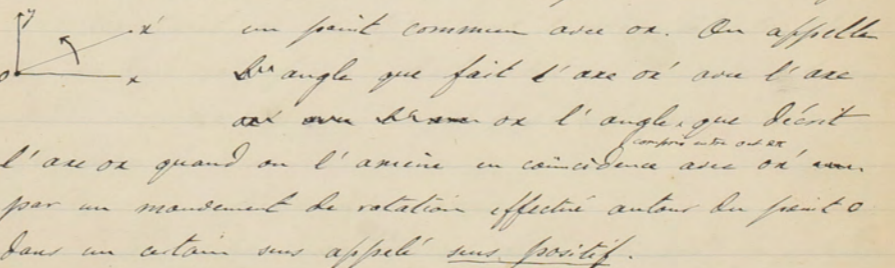 y
x'
o
x
un point commun avec ox. On appelle
angle que fait l'axe ox' avec l'axe
ox l'angle que décrit
compris entre o et 2π
l'axe ox quand on l'amène en coïncidence avec ox'
par un mouvement de rotation effectué autour du point o
dans un certain sens appelé sens positif.